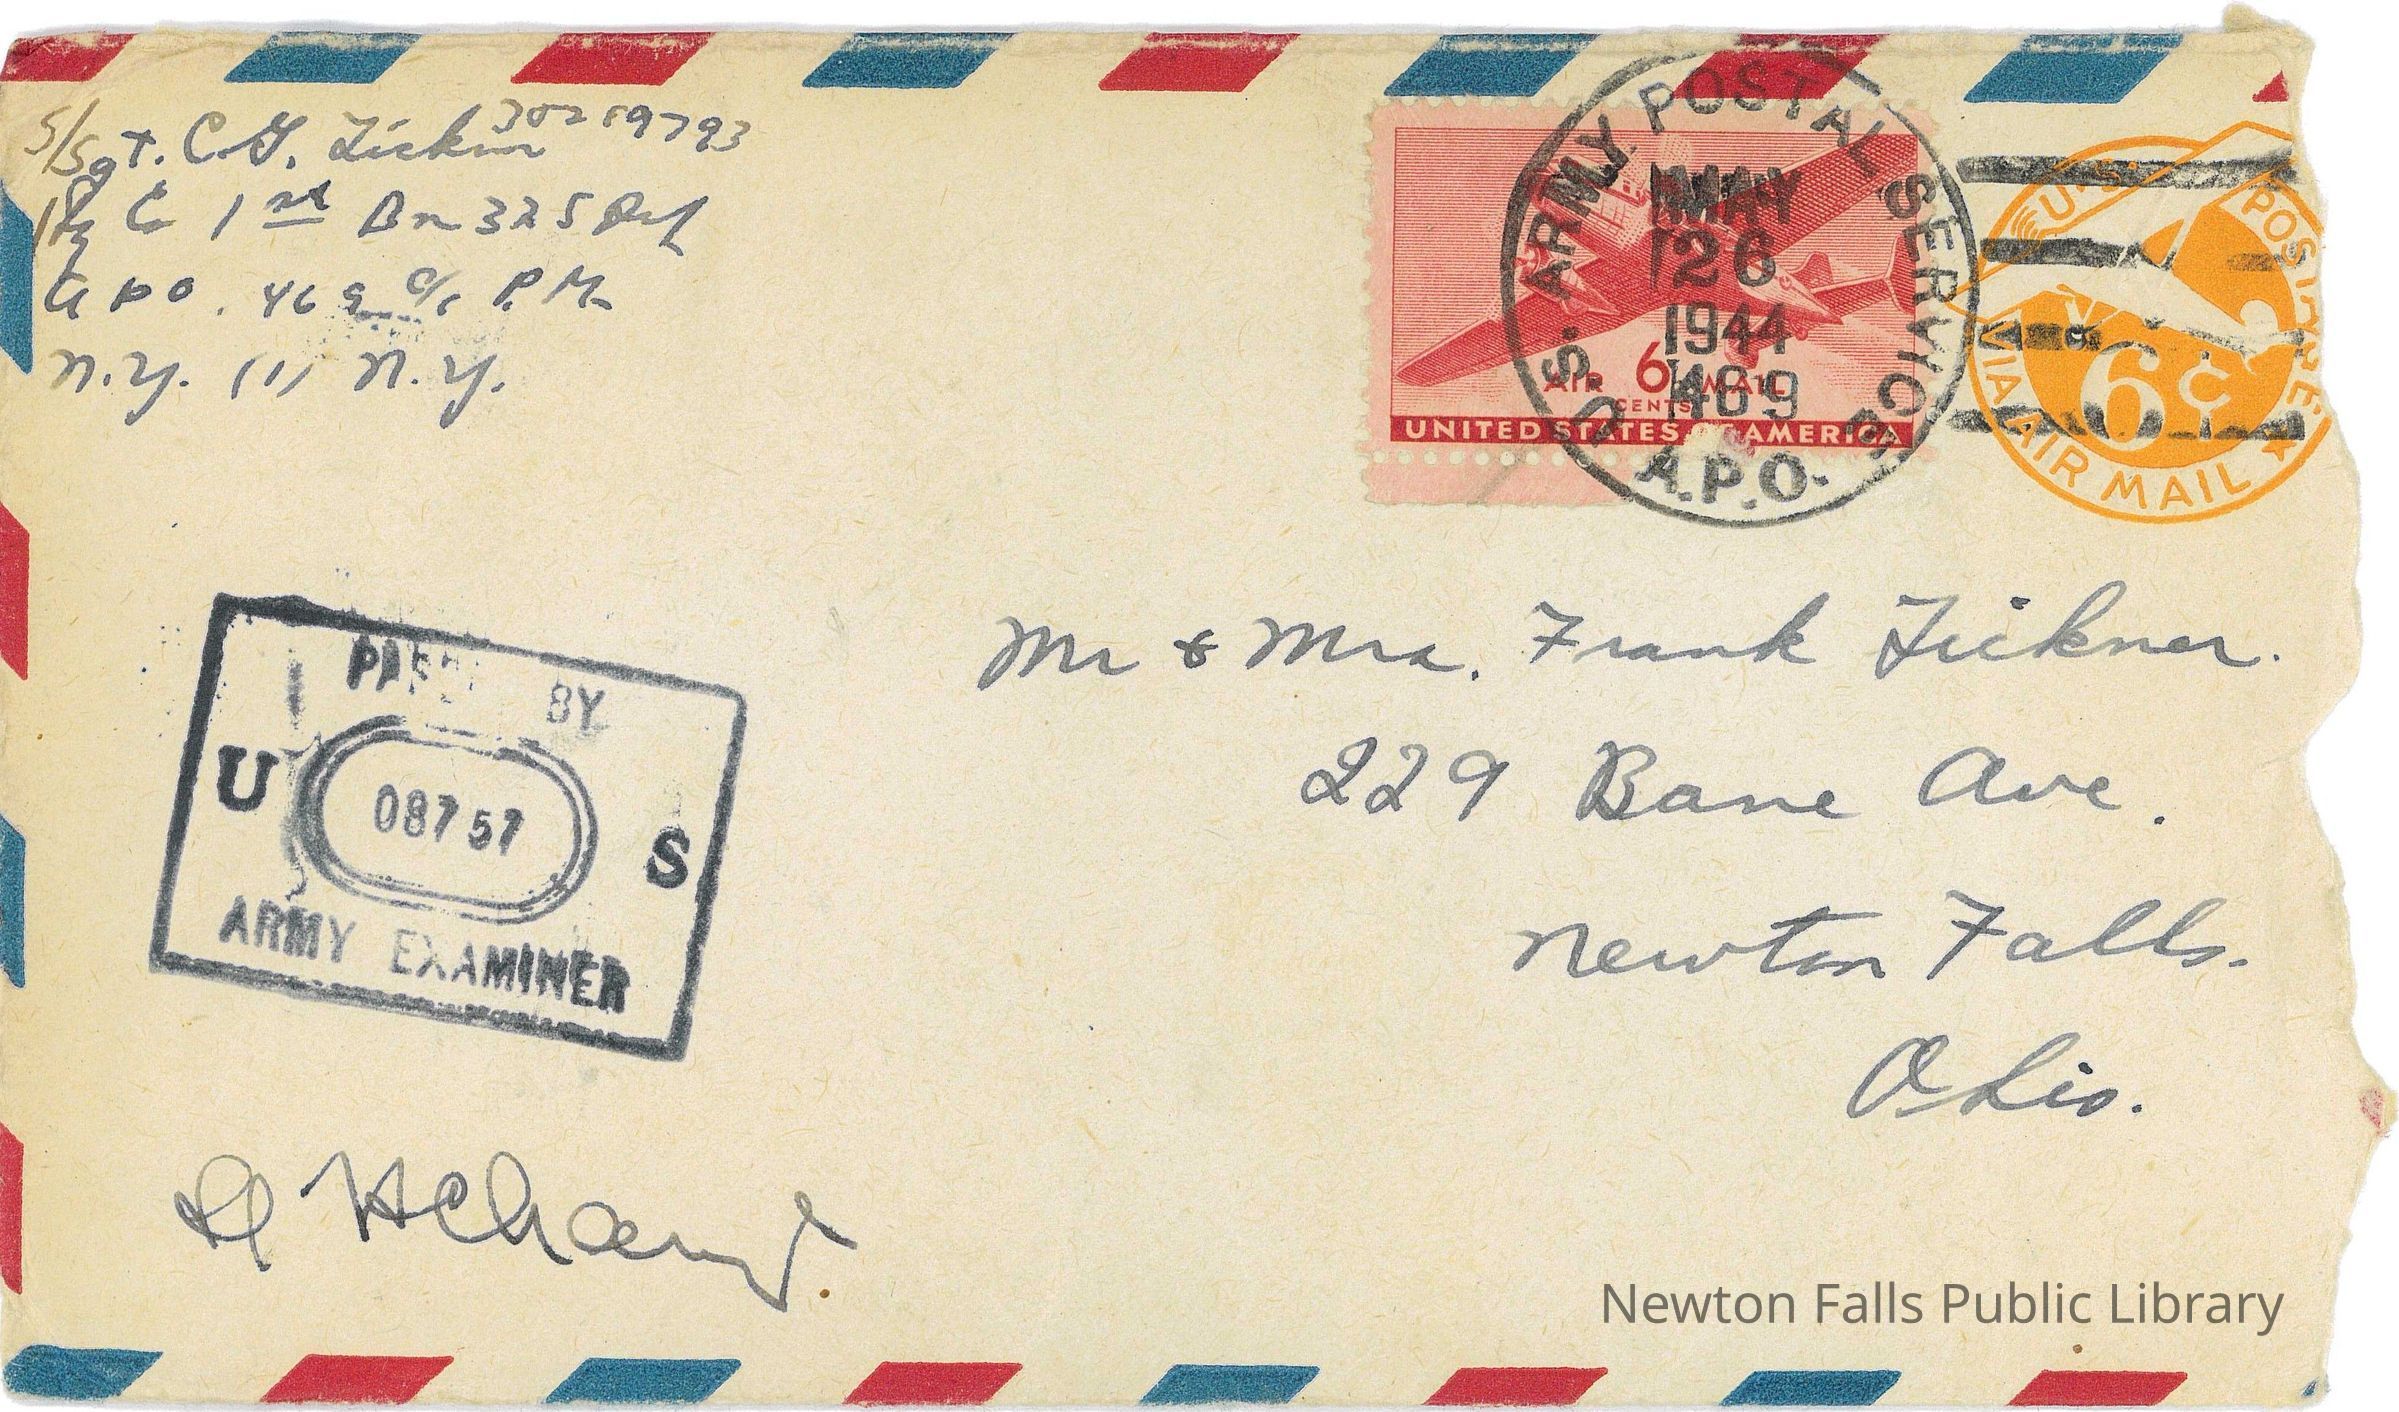 S/Sgt. C.G. Tickner 30259793
Hq Co 1st Bn 325 Inf
APO. 469 c/o P.M.
N.Y. (1) N.Y.
U.S. ARMY POSTAL SERVICE
A.P.O.
MAY
26
1944
469
AIR 6 MAIL
CENTS
UNITED STATES OF AMERICA
U.S. POSTAGE
6¢
VIA AIR MAIL
Mr & Mrs. Frank Tickner.
229 Bane Ave.
Newton Falls.
Ohio.
PASSED BY
U 08757 S
ARMY EXAMINER
Newton Falls Public Library